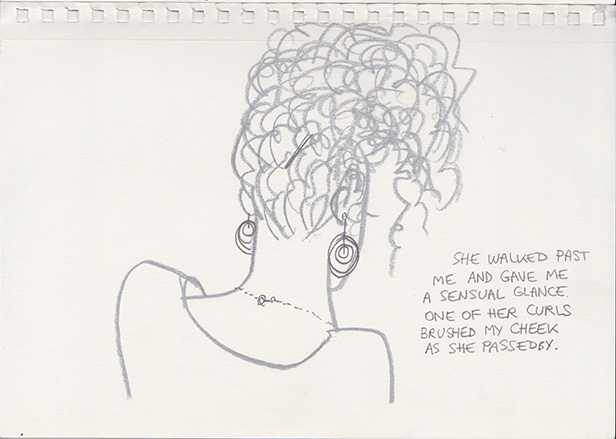 SHE WALKED PAST
ME AND GAVE ME
A SENSUAL GLANCE.
ONE OF HER CURLS
BRUSHED MY CHEEK
AS SHE PASSEDBY.